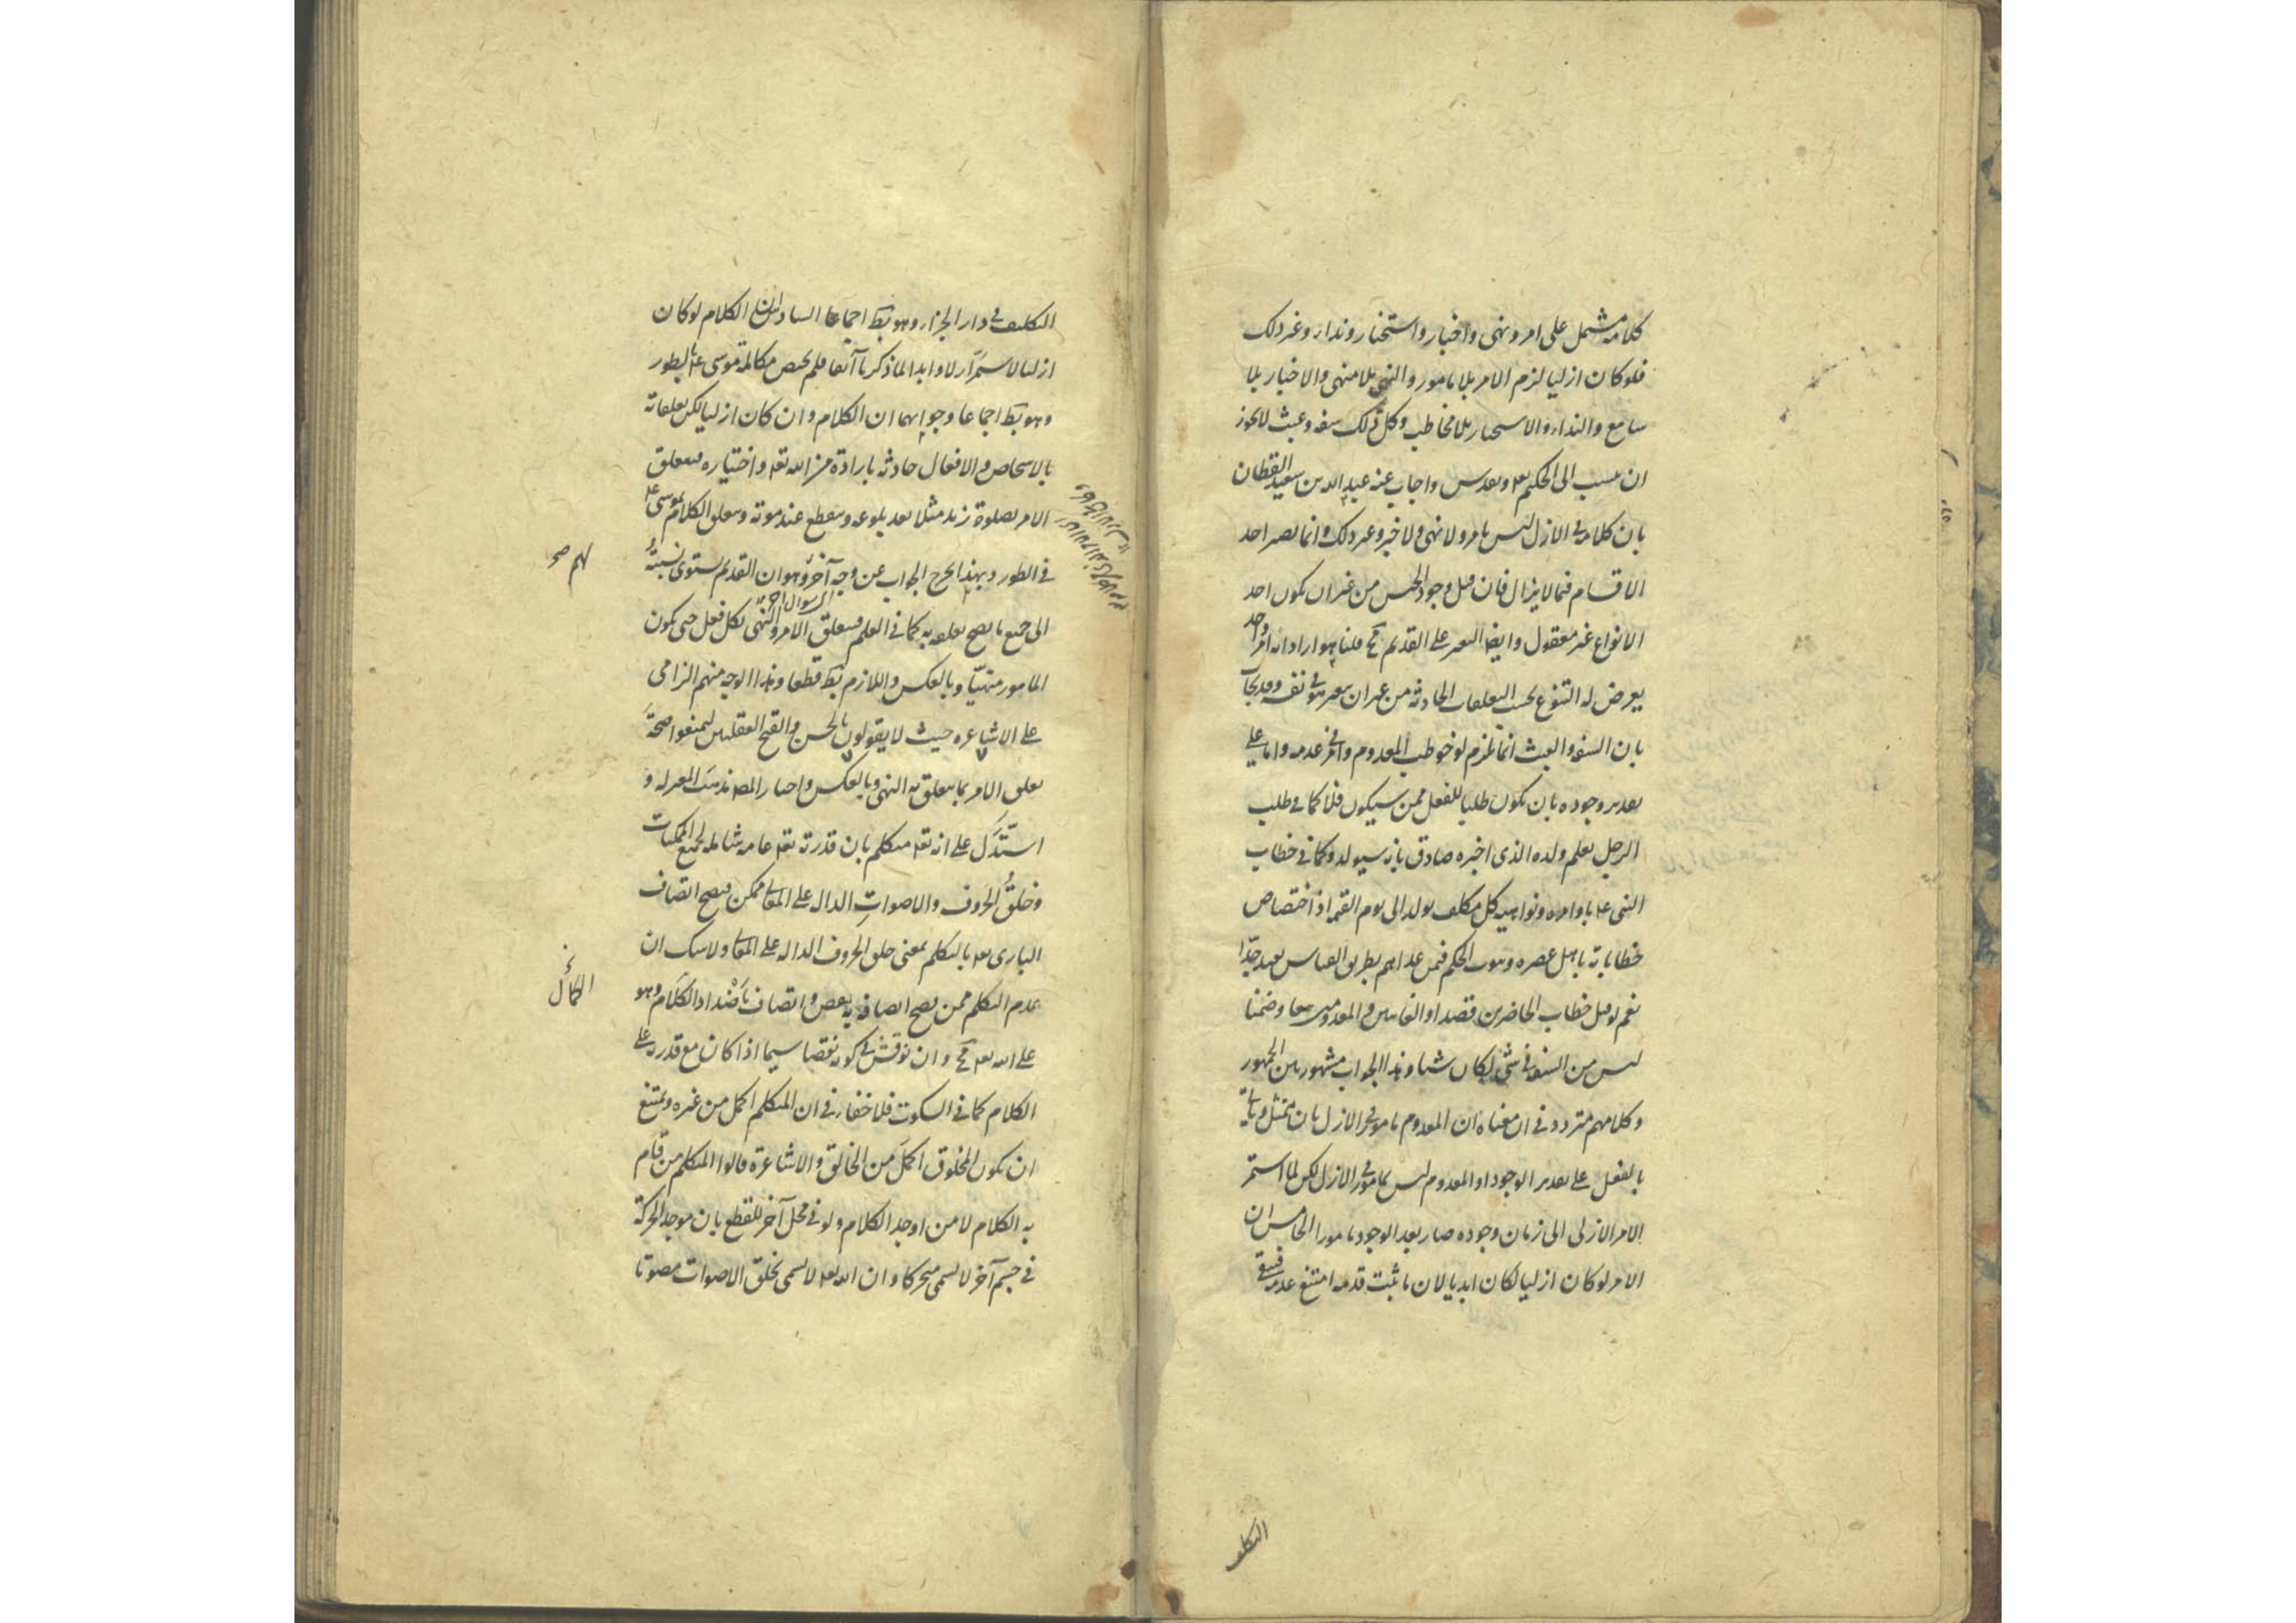 كلامه مشتمل على امر ونهى واخبار واستخبار ونداء وغير ذلك
فلو كان ازليا لزم الامر بلا مامور والنهى بلا منهى والاخبار بلا
سامع والنداء والاستخبار بلا مخاطب وكل ذلك سفه وعبث لا يجوز
ان ينسب الى الحكيم تعه وتقدس واجاب عنه عبد الله بن سعيد القطان
بان كلامه فى الازل ليس بامر ولا نهى ولا خبر وغير ذلك وانما يصير احد
الاقسام فيما لا يزال فان قيل وجود الجنس من غير ان يكون احد
الانواع غير معقول وايضا التغير على القديم مح قلنا هو اراد انه امر واحد
يعرض له التنوع بحسب التعلقات الحادثة من غير ان يتغير هو فى نفسه وقد يجاب
بان السفه والعبث انما يلزم لو خوطب المعدوم وامر فى عدمه واما على
تقدير وجوده بان يكون طلبا للفعل ممن سيكون فلا كما فى طلب
الرجل تعلم ولده الذى اخبره صادق بانه سيولد وكما فى خطاب
النبى ع م باوامره ونواهيه كل مكلف يولد الى يوم القيمة اذ اختصاص
خطاباته باهل عصره وثبوت الحكم فيمن عداهم بطريق القياس بعيد جدّا
نعم لو قيل خطاب الحاضرين قصدا والغائبين والمعدومين تبعا وضمنا
ليس من السفه فى شئ لكان شيئا وهذا الجواب مشهور بين الجمهور
وكلامهم متردد فى ان معناه ان المعدوم مامور فى الازل بان يمتثل وياتى
بالفعل على تقدير الوجود او المعدوم ليس بمامور فى الازل لكن لما استمر
الامر الازلى الى زمان وجوده صار بعد الوجود مامورا الخامس ان
الامر لو كان ازليا لكان ابديا لان ما ثبت قدمه امتنع عدمه فيبقى
التكليف
التكليف فى دار الجزاء وهو بط اجماعا السادس ان الكلام لو كان
ازليا لاستمرّ ازلا وابدا لما ذكرنا آنفا فلم يختص مكالمة موسى ع م بالطور
وهو بط اجماعا وجوابهما ان الكلام وان كان ازليا لكن تعلقاته
بالاشخاص والافعال حادثة بارادة من الله تعه واختياره فيتعلق
الامر بصلوة زيد مثلا بعد بلوغه وينقطع عند موته وتعلق الكلام بموسى ع م
فى الطور وبهذا يخرج الجواب عن وجه آخر لهم وهو ان القديم يستوى نسبته
الى جميع ما يصح تعلقه به كما فى العلم فيتعلق الامر والنهى بكل فعل حتى يكون
المامور منهيّا وبالعكس واللازم بط قطعا وهذا الوجه منهم الزامى
على الاشاعره حيث لا يقولون بالحسن والقبح العقليين ليمنعوا صحة
تعلق الامر بما يتعلق به النهى وبالعكس واختار المصـ مذهب المعتزلة و
استدَلّ على انه تعه متكلم بان قدرته تعه عامه شاملة لجميع الممكنات
وخلق الحروف والاصوات الدال على المعانى ممكن فيصح اتصاف
البارى تعه بالتكلم بمعنى خلق الحروف الداله على المعانى ولا شك ان
عدم التكلم ممن يصح اتصافه به نقص واتصاف باضداد الكلام وهو
على الله تعه مح وان نوقش فى كونه نقصا سيما اذا كان مع قدرته على
الكلام كما فى السكوت فلا خفاء فى ان المتكلم اكمل من غيره ويمتنع
ان يكون المخلوق اكمل من الخالق والاشاعرة قالوا المتكلم من قام
به الكلام لا من اوجد الكلام ولو فى محل آخر للقطع بان موجد الحركة
فى جسم آخر لا يسمى متحركا وان الله تعه لا يسمى بخلق الاصوات مصوتا
لهم صح